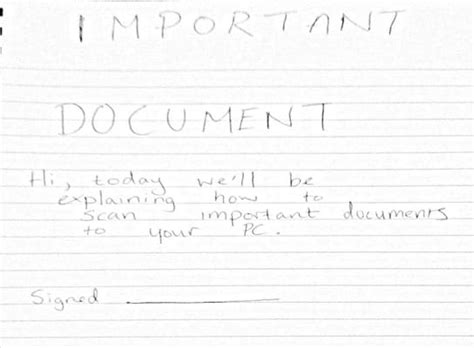 IMPORTANT
DOCUMENT
Hi, today we'll be
explaining how to
scan important documents
to your PC.
Signed